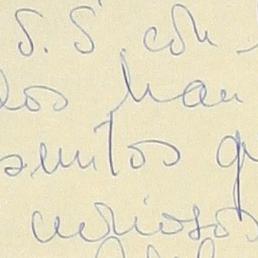 S. S. con
los han
asuntos q
curiosos